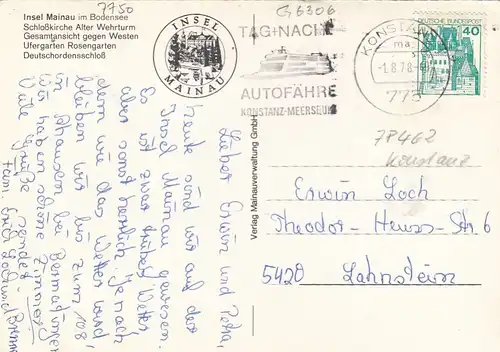 7750
Insel Mainau im Bodensee
Schloßkirche Alter Wehrturm
Gesamtansicht gegen Westen
Ufergarten Rosengarten
Deutschordensschloß
INSEL
MAINAU
G 6306
TAG+NACHT
AUTOFÄHRE
KONSTANZ-MEERSBURG
KONSTANZ
ma
-1.8.78
775
DEUTSCHE BUNDESPOST
40
78462
Konstanz
Verlag Mainauverwaltung GmbH
Lieber Erwin und Petra,
heute sind wir auf der
Insel Mainau gewesen.
Es ist zwar trüber Wetter
aber sonst herrlich. Je nach
dem wie das Wetter wird
bleiben wir bis zum 10.8,
wir hausen bei
Wir haben schöne Zimmer.
Viele Grüße sendet
Fam.
Erwin Loch
Theodor-Heuss-Str. 6
5420 Lahnstein